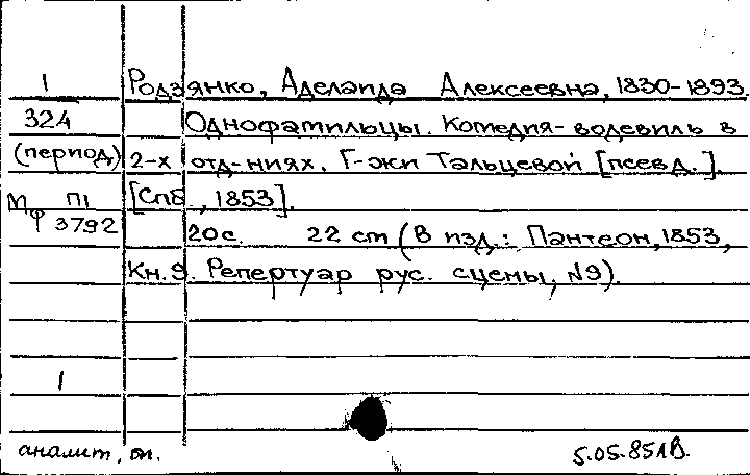 1 Родзянко, Аделаида Алексеевна, 1830-1893.
324 Однофамильцы. Комедия-водевиль в
(период) 2-х отд-ниях. Г-жи Тальцевой [псевд.].
Мф П1 [Спб., 1853].
3792 20с. 22 cm (В изд.: Пантеон, 1853,
Кн.9. Репертуар рус. сцены, №9).
1
аналит, оп. 5.05.85